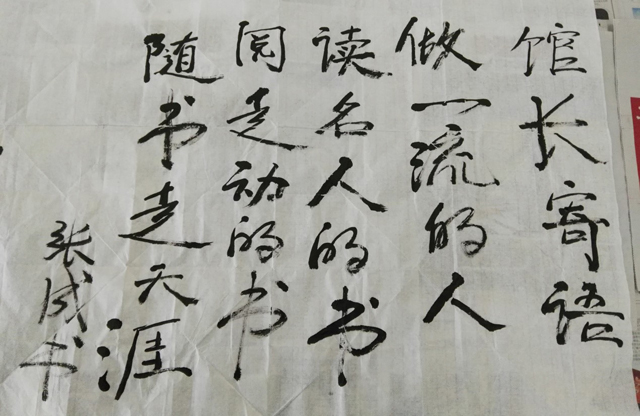 馆长寄语
做一流的人
读名人的书
阅走动的书
随书走天涯
张成书